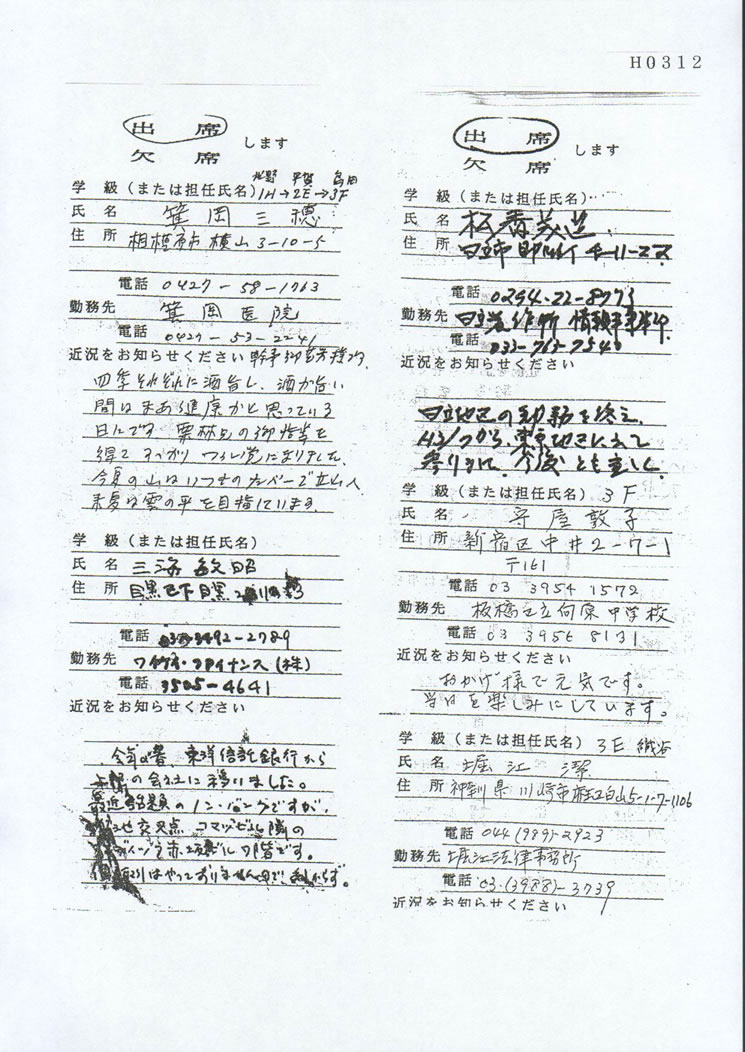 H0312
出席
欠席 します
学 級(または担任氏名) 1H→2E→3F
氏 名 箕岡三穂
住 所 相模原市横山3-10-5
電話 0427-58-1763
勤務先 箕岡医院
電話 0427-53-2241
近況をお知らせください 幹事
四季それぞれに酒旨し、酒が旨い
間はまあまあ健康かと思っている
日々です。栗林兄の御指導を
得て すっかり ワイン党になりました。
今夏の山はいつものメンバーで立山へ
来夏は雲の平を目指しています。
学 級(または担任氏名)
氏 名 三海敏昭
住 所 目黒区下目黒
電話 03-3492-2789
勤務先 ファイナンス(株)
電話 3505-4641
近況をお知らせください
今年 東洋信託銀行から
の会社に移りました。
最近 のノンバンクですが、
交叉点 コマツビル隣の
赤坂ビル7階です。
はやっておりませんので、あしからず。
出席
欠席 します
学 級(または担任氏名)
氏 名 松香
住 所 日立市
電話 0294-22-8773
勤務先 日立製作所 情報事業部
電話
近況をお知らせください
日立地区の勤務を終え、
から、東京地区に
参りました。今後とも宜しく。
学 級(または担任氏名) 3F
氏 名 守屋敦子
住 所 新宿区中井2-7-1
〒161
電話 03 3954 1572
勤務先 板橋区立向原中学校
電話 03 3956 8131
近況をお知らせください
おかげ様で元気です。
当日を楽しみにしています。
学 級(または担任氏名) 3E
氏 名 堀江 潔
住 所 神奈川県川崎市麻生区白山5-1-7-1106
電話 044(989)-2923
勤務先 堀江法律事務所
電話 03-(3988)-3739
近況をお知らせください